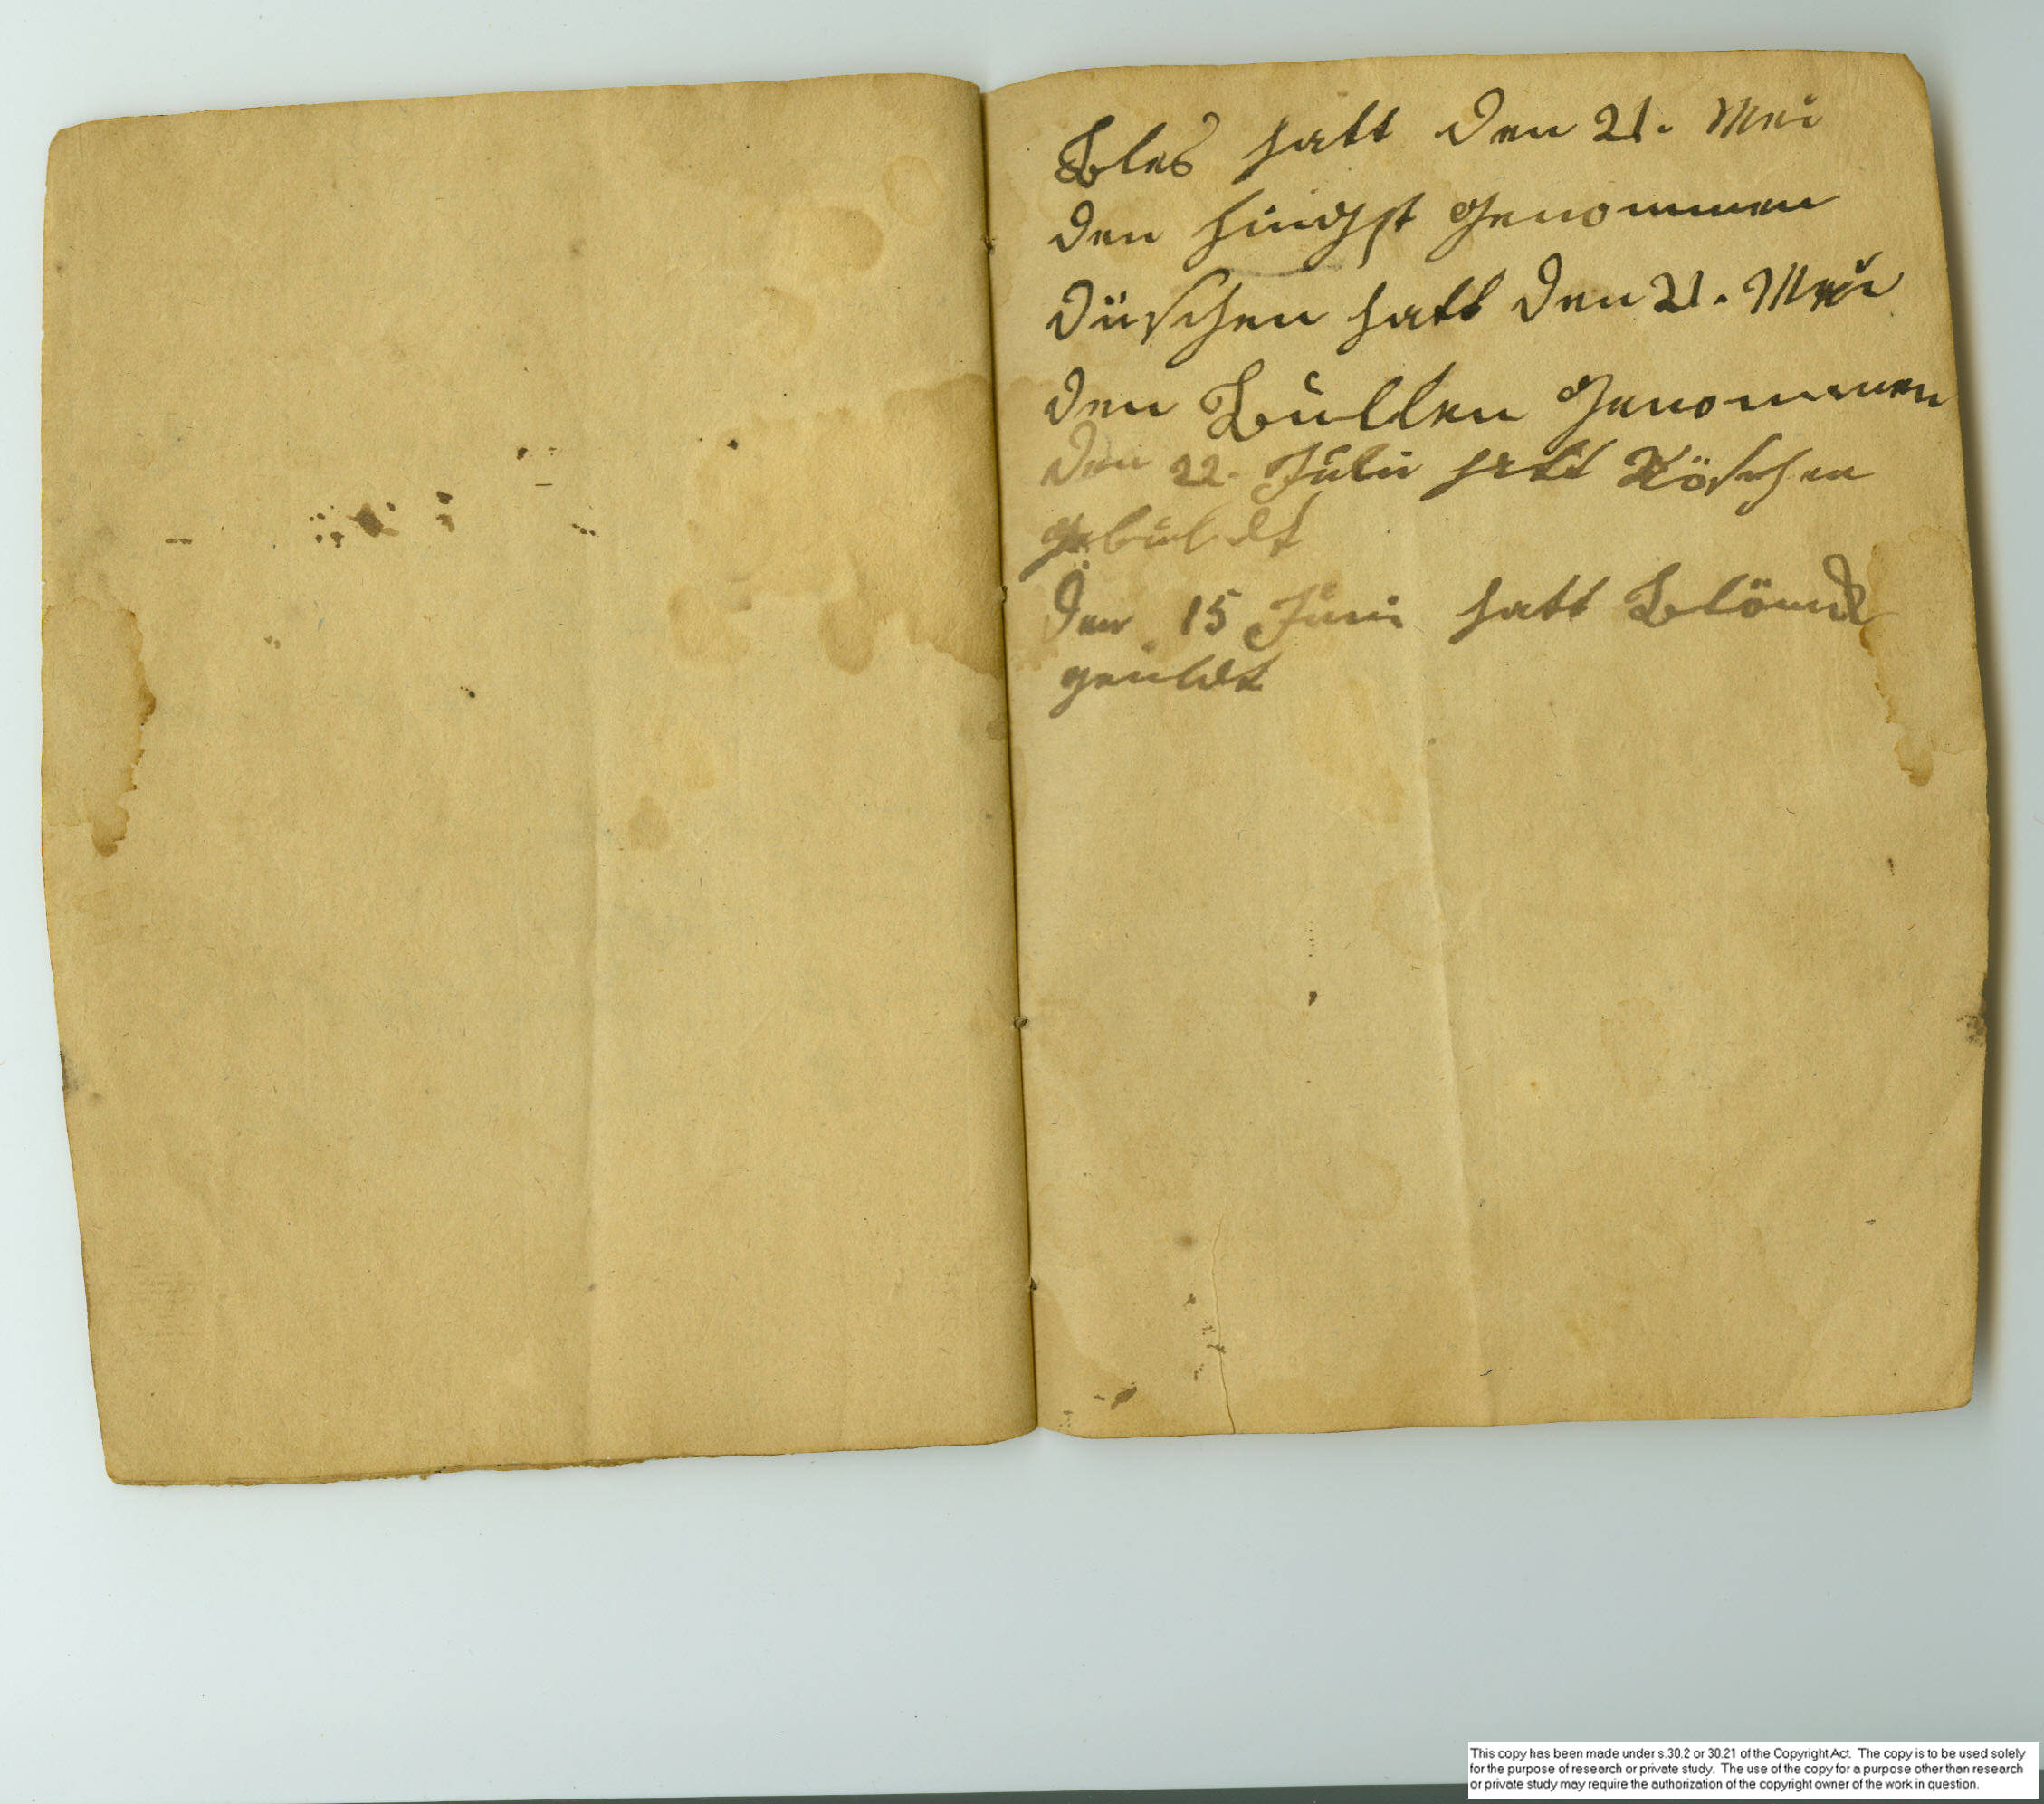 Bles hatt den 21. Mei
den hingst genommen
Düschen hatt den 21. Mei
den Bullen genommen
den 22. Juli hatt Röschen
gebulldt
Den 15 Juni hatt Blöm
This copy has been made under s.30.2 or 30.21 of the Copyright Act. The copy is to be used solely
for the purpose of research or private study. The use of the copy for a purpose other than research
or private study may require the authorization of the copyright owner of the work in question.